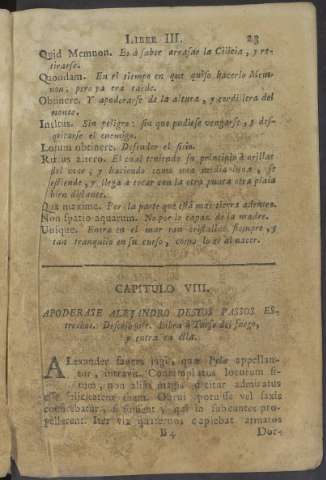 LIBER III. 23
Quid Memnon. Es à saber arrasar la Cilicia, y re-
tirarse.
Quondam. En el tiempo en que quiso hacerlo Mem-
non, pero ya era tarde.
Obtinere. Y apoderarse de la altura, y cordillera del
monte.
Inultus. Sin peligro: sin que pudiese vengarse, y des-
quitarse el enemigo.
Locum obtinere. Defender el sitio.
El qual teniendo su principio à orillas
del mar, y haciendo como una media luna, se
estiende, y llega à tocar con la otra punta otra plaia
bien distante.
Qua maxime. Por la parte que está mas tierra adentro.
Non spatio aquarum. No por lo capaz de la madre.
Utique. Entra en el mar tan cristalino siempre, y
tan tranquilo en su curso, como lo es al nacer.
CAPITULO VIII.
APODERASE ALEJANDRO DESTOS PASSOS ES-
trechos. Libra à Tarso del fuego,
y entra en ella.
Alexander fauces jugi, quæ Pylæ appellan-
tur, intravit. Contemplatus locorum si-
tum, non alias magis dicitur admiratus
esse felicitatem suam. Obrui potuisse vel saxis
si fuissent qui in subeuntes pro-
pellerent. Iter vix quaternos capiebat armatos
B 4 Dor-